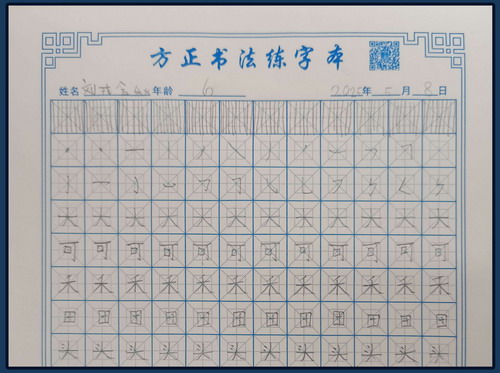 方正书法练字本
姓名 年龄 6 年 月 8 日
大 大 大 大 大 大 大 大 大 大 大 大
可 可 可 可 可 可 可 可 可 可 可 可
禾 禾 禾 禾 禾 禾 禾 禾 禾 禾 禾 禾
田 田 田 田 田 田 田 田 田 田 田 田
头 头 头 头 头 头 头 头 头 头 头 头